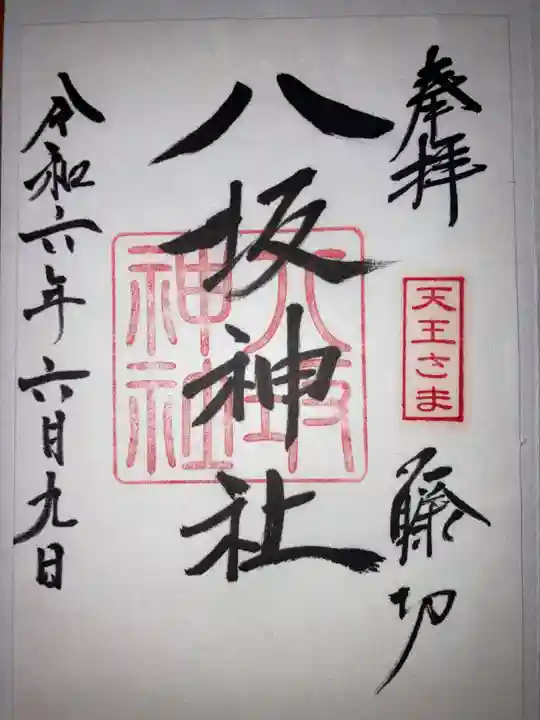 奉拝
天王さま
藤切
八坂神社
八坂
神社
令和六年六月九日